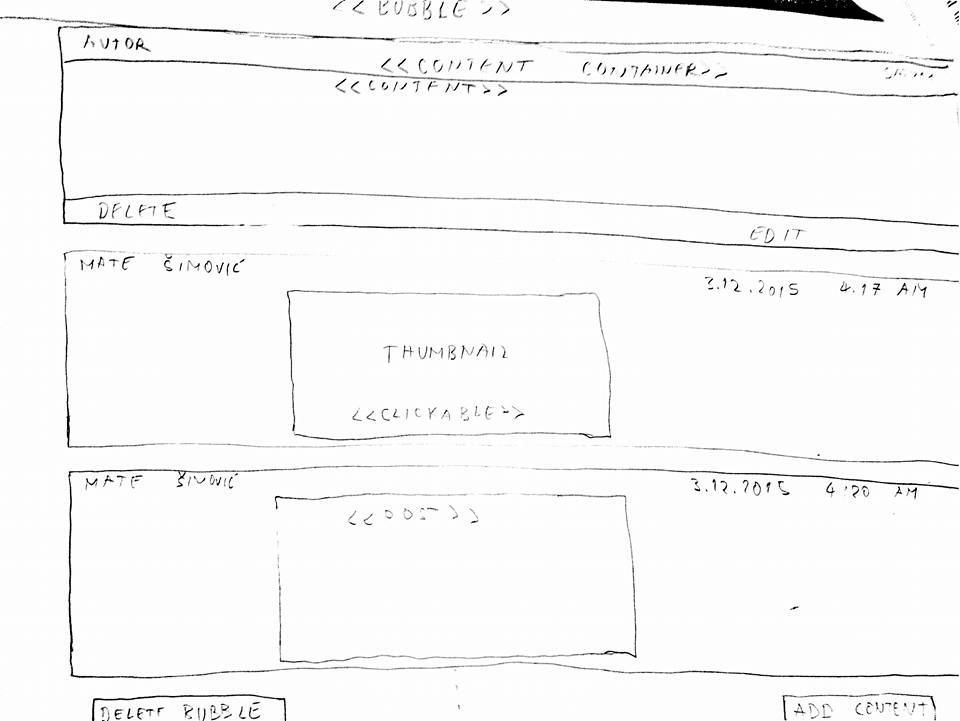 << BUBBLE >>
AUTOR
<<CONTENT CONTAINER>>
<<CONTENT>>
DELETE
EDIT
MATE ŠIMOVIĆ
3.12.2015 4.17 AM
THUMBNAIL
<<CLICKABLE>>
MATE ŠIMOVIĆ
3.12.2015 4:20 AM
DELETE BUBBLE
ADD CONTENT